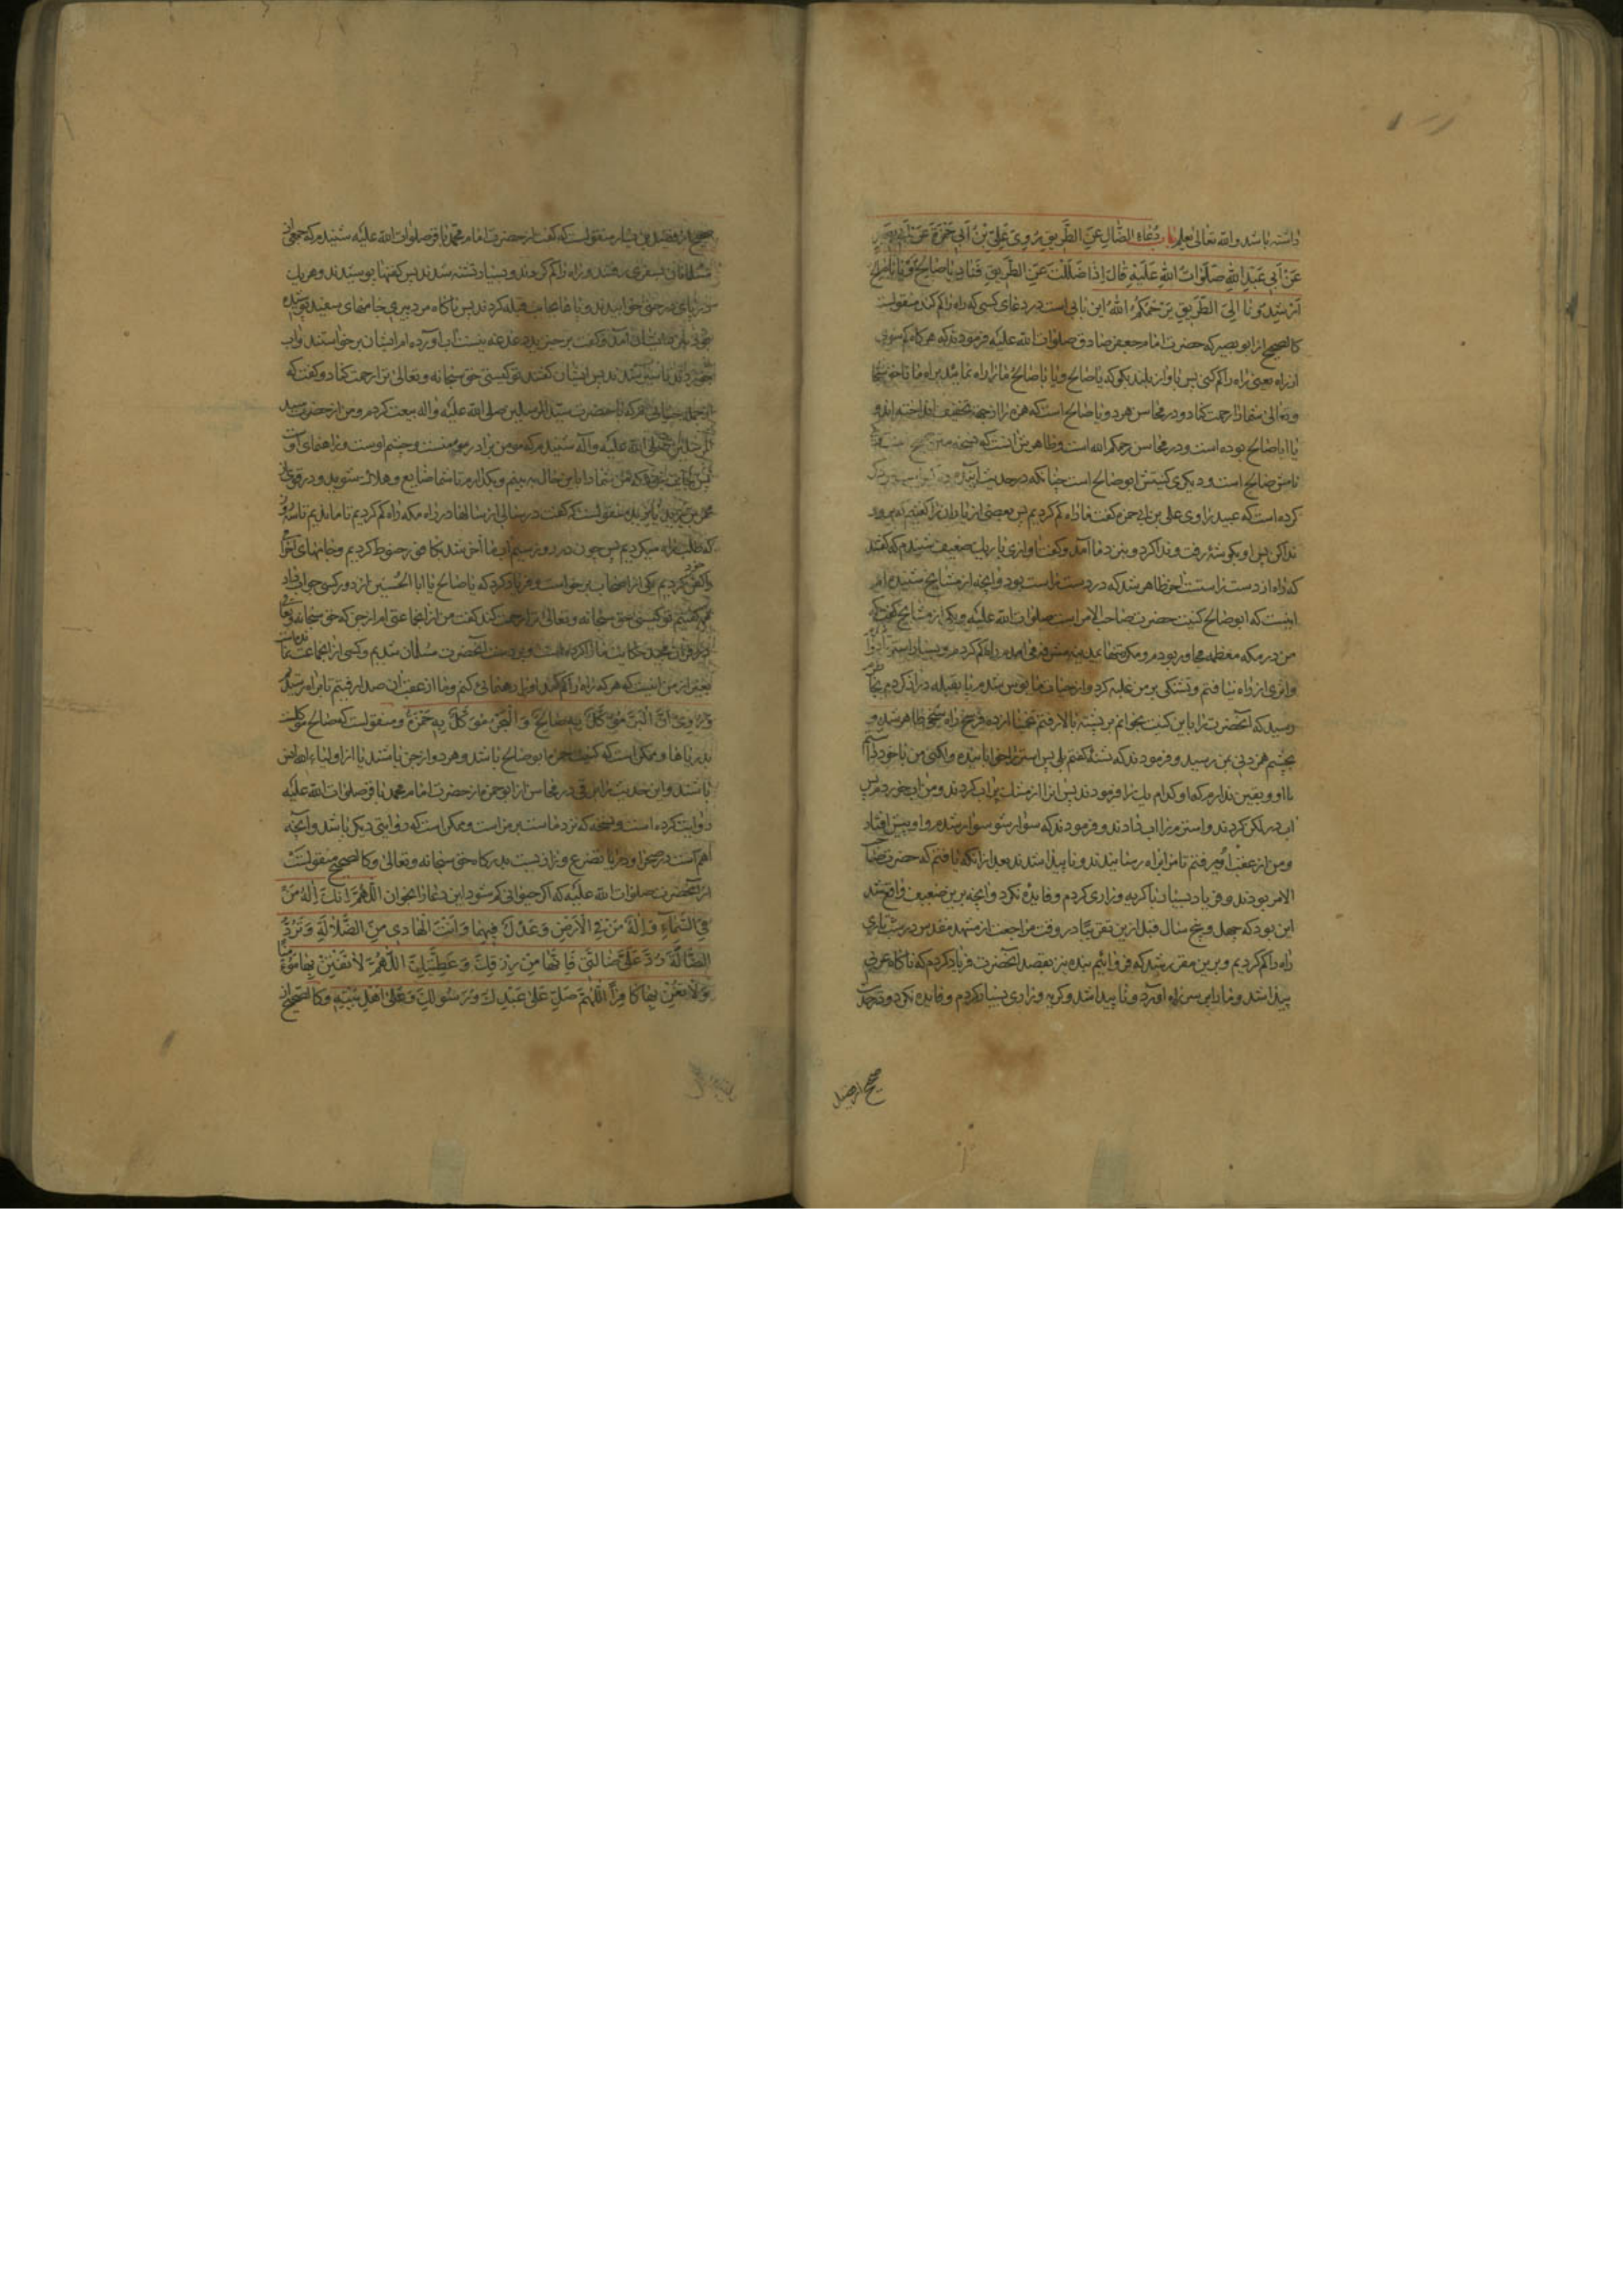 داشته باشد والله تعالی یعلم باب دُعَاءِ الضَّالِّ عَنِ الطَّرِیقِ رَوی عَلِیُّ بْنُ أَبِی حَمْزَةَ عَنْ أَبِی بَصِیرٍ
عَنْ أَبِی عَبْدِ اللهِ صَلَوَاتُ اللهِ عَلَیْهِ قَالَ إِذَا ضَلَلْتَ عَنِ الطَّرِیقِ فَنَادِ یَا صَالِحُ وَیَا بَا صَالِحٍ
أَرْشِدُونَا إِلَی الطَّرِیقِ یَرْحَمْکُمُ اللهُ این بابی است در دعای کسی که راه را کم کند منقولست
کالصحیح از ابو بصیر که حضرت امام جعفر صادق صلوات الله علیه فرمودند که هر کاه کم شوی
از راه یعنی راه را کم کنی پس باواز بلند بکو که یا صالح و یا با صالح ما را راه نمایید براه ما تا حق سبحانه
وتعالی شما را رحمت کناد و در محاسن هر دو یا صالح است که همزه را از جهة تخفیف انداخته اند و
یا ابا صالح بوده است و در محاسن رحمکم الله است و ظاهر متن آنست که
نامش صالح است و دیکری کنیتش ابو صالح است چنانکه در حدیث آینده
کرده است که عبید راوی علی بن ابی حمزه کفت ما راه کم کردیم پس بعضی از یاران را کفتیم که برو و
ندا کن پس او بکوشهٔ رفت و ندا کرد و بنزد ما آمد و کفت اوازی باریک ضعیف شنیدم که کفتند
که راه از دست راستست پس ظاهر شد که در دست راست بود و آنچه از مشایخ شنیده ام
اینست که ابو صالح کنیت حضرت صاحب الامر است صلوات الله علیه و یکی از مشایخ کفت که
من در مکه معظمه مجاور بودم و مکرر تنها بمدینه مشرفه می آمدم راه کم کردم و بسیار
واثری از راه نیافتم و تشنکی بر من غلبه کرد و از حیات مایوس شدم پا بقبله دراز کردم بخاطرم
رسید که آنحضرت را باین کنیت بخوانم بر پشتهٔ بالا رفتم تخمیناً از ده فرسخ راه شخصی ظاهر شد و
بچشم همزدنی بمن رسید و فرمودند که تشنهٔ کفتم بلی پس استر را خوابانیده و لکنی من با خود داشتم
با او و یقین ندارم که ما و کدام یک را فرمودند پس انرا از مشک پر آب کردند و من آب خوردم پس
آب در لکن کردند و استر مرا آب دادند و فرمودند که سوار شو سوار شدم و او پیش افتاد
و من از عقب او میرفتم تا مرا براه رسانیدند و ناپیدا شدند بعد از آنکه یافتم که حضرت صاحب
الامر بودند و فریاد بسیار با کریه و زاری کردم و فایده نکرد و آنچه برین ضعیف واقع شد
این بود که چهل و پنج سال قبل ازین تقریبًا در وقت مراجعت از مشهد مقدس در شب تاری
راه را کم کردیم و برین مقرر شد که فرود آئیم بنده نیز بقصد آنحضرت فریاد کردم که ناکاه عربی
پیدا شد و ما را بر سر راه آورد و ناپیدا شد و کریه و زاری بسیار کردم و فایده نکرد و
صحیح از فضیل
صحیح از فضیل بن یسار منقولست که کفت از حضرت امام محمد باقر صلوات الله علیه شنیدم که جمعی از
مسلمانان بسفری رفتند و راه را کم کردند و بسیار تشنه شدند پس کفنها پوشیدند و هر یک
در پای درختی خوابیدند و پاها بجانب قبله کردند پس ناکاه مرد پیری جامهای سفید پوشیده
بود نزد ایشان آمد و کفت برخیزید دغدغه نیست آب آورده ام ایشان برخواستند و آب
خوردند تا سیر شدند پس ایشان کفتند تو کیستی حق سبحانه و تعالی ترا رحمت کناد و کفت که
از جمله جنیانی ام که با حضرت سید المرسلین صلی الله علیه واله بیعت کردم و من از حضرت سید
المرسلین صلی الله علیه وآله شنیدم که مومن برادر مومنست و چشم اوست و راهنمای اوست
پس جایز نبود که من شما را باین حال به بینم و بکذارم تا شما ضایع و هلاک شوید و در
منقولست که کفت در سالی از سالها در راه مکه راه کم کردیم تا ما بودیم تا سه روز
که طلب راه میکردیم پس چون در روز سیم آب ما آخر شد بکافور حنوط کردیم و جامهای احرام را
کفن خود کردیم یکی از اصحاب برخواست و فریاد کرد که یا صالح یا ابا الحُسَین از دور کسی جواب داد
کفتیم تو کیستی حق سبحانه و تعالی ترا رحمت کند کفت من از آنجماعتی ام از جن که حق سبحانه وتعالی
در قرآن مجید حکایت ما را کرده است و بر دست آنحضرت مسلمان شدیم و کسی از آنجماعت نمانده است
بغیر از من اینست که هر که راه را کم کند او را رهنمائی کنم و ما از عقب آن صدا رفتیم تا براه رسیدیم
وَرُوِیَ أَنَّ الْبَرَّ مُوَکَّلٌ بِهِ صَالِحٌ وَ الْبَحْرَ مُوَکَّلٌ بِهِ حَمْزَةُ و منقولست که صالح موکلست
بدریاها و ممکن است که کنیت حمزه ابو صالح باشد و هر دو از جن باشند یا از اولیاء الله
باشند و این حدیث را برقی در محاسن از ابو حمزه از حضرت امام محمد باقر صلوات الله علیه
روایت کرده است و نسخه که نزد ماست بر مر است و ممکن است که روایتی دیکر باشد و آنچه
اهم است در صحرا و دریا تضرع و زاریست بدرکاه حق سبحانه وتعالی وکالصحیح منقولست
از آنحضرت صلوات الله علیه که اکر حیوانی کم شود این دعا را بخوان اللّهُمَّ إِنَّکَ إِلَهُ مَنْ
فِی السَّمَاءِ وَإِلَهُ مَنْ فِی الأَرْضِ وَعَدْلٌ فِیهِمَا وَأَنْتَ الْهَادِی مِنَ الضَّلَالَةِ وَتَرُدُّ
الضَّالَّةَ رُدَّ عَلَیَّ ضَالَّتِی فَإِنَّهَا مِنْ رِزْقِکَ وَعَطِیَّتِکَ اللّهُمَّ لَا تَفْتِنْ بِهَا مُؤْمِنًا
وَلَا تُغْنِ بِهَا کَافِرًا اللّهُمَّ صَلِّ عَلَی عَبْدِکَ وَرَسُولِکَ وَعَلَی أَهْلِ بَیْتِهِ وکالصحیح از